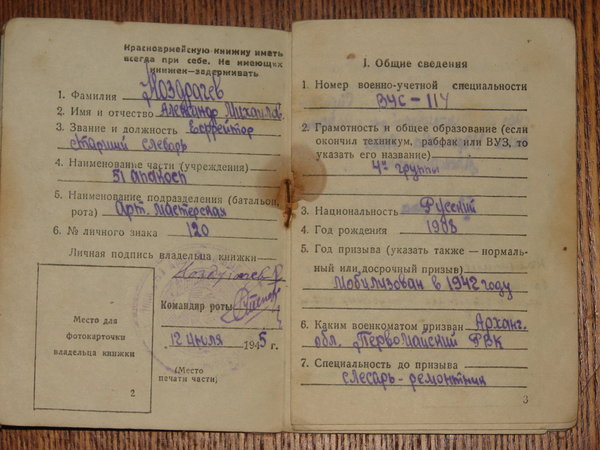 Красноармейскую книжку иметь
всегда при себе. Не имеющих
книжек—задерживать
1. Фамилия Ноздрачев
2. Имя и отчество Александр Михайлов.
3. Звание и должность Ефрейтор
старший слесарь
4. Наименование части (учреждения)
51
5. Наименование подразделения (батальон,
рота) Арт. мастерская
6. № личного знака 120
Личная подпись владельца книжки—
Командир роты
12 июля 1945 г.
(Место
печати части)
Место для
фотокарточки
владельца книжки
2
I. Общие сведения
1. Номер военно-учетной специальности
ВУС-114
2. Грамотность и общее образование (если
окончил техникум, рабфак или ВУЗ, то
указать его название)
4 группы
3. Национальность Русский
4. Год рождения 1908
5. Год призыва (указать также — нормаль-
ный или досрочный призыв)
Мобилизован в 1942 году
6. Каким военкоматом призван Арханг.
обл. Первомайский РВК
7. Специальность до призыва
слесарь-ремонтник
3